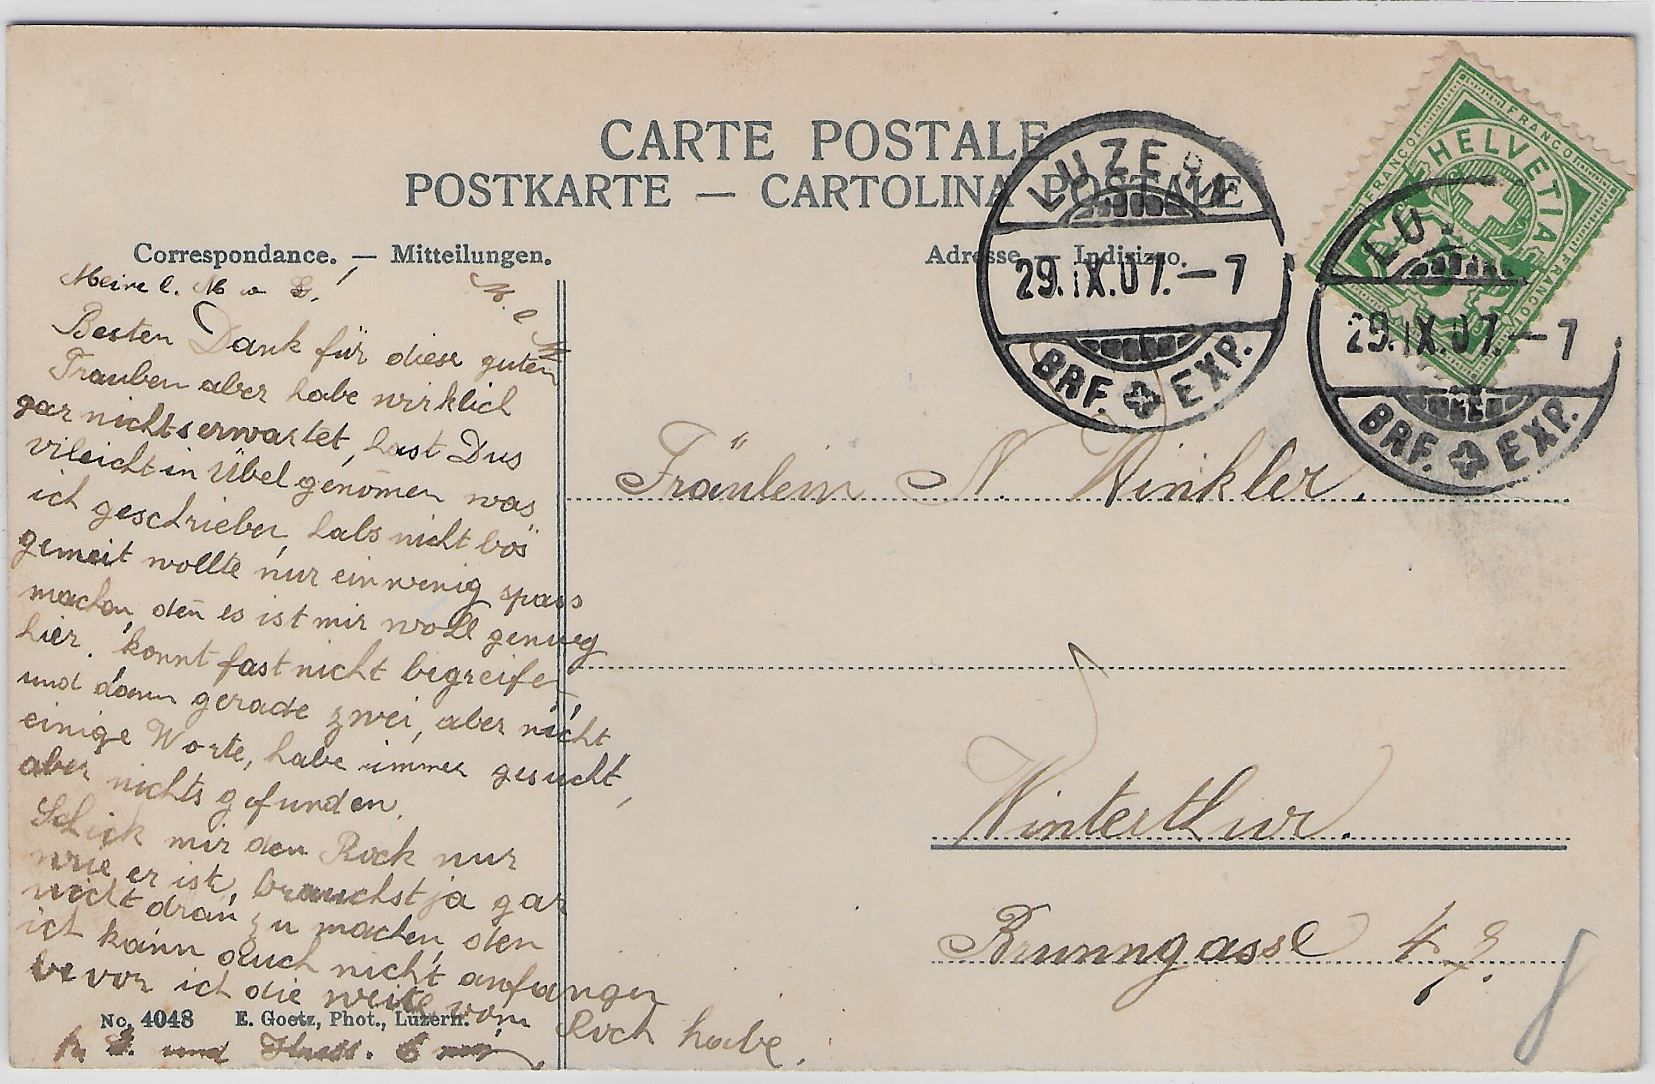 CARTE POSTALE
POSTKARTE — CARTOLINA POSTALE
Correspondance. — Mitteilungen.
Adresse — Indirizzo.
HELVETIA
FRANCO FRANCO FRANCO
LUZERN
29.IX.07.—7
BRF. EXP.
LU
29.IX.07.—7
BRF. EXP.
Meine l. M
Besten Dank für diese guten
Trauben aber habe wirklich
gar nichts erwartet, hast Dus
vileicht in Übel genom̄en was
ich geschrieben, habs nicht bös
gemeit wollte nur ein wenig spass
machen, den̄ es ist mir woll genueg
hier. konnt fast nicht begreifen,
und dann gerade zwei, aber nicht
einige Worte, habe immer gesucht,
aber nichts gefunden.
Schick mir den Rock nur
wie er ist, brauchst ja gar
nicht dran zu machen, den
ich kann auch nicht anfangen
bevor ich die weite vom Rock habe.
und
Fräulein N. Winkler.
Winterthur.
Brunngasse 47.
No. 4048 E. Goetz, Phot., Luzern.